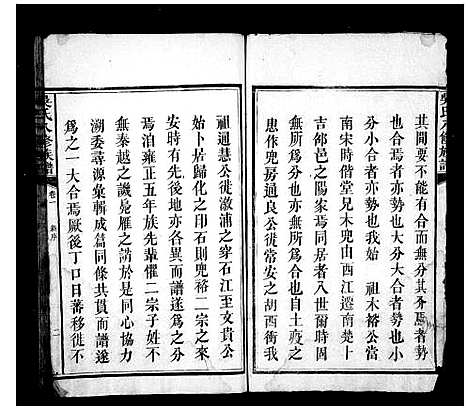 其間要不能有合而無分其分焉者勢
也然與大分大合者勢也小
分小合者亦勢也我始 祖木裕公當
南宋時偕堂兄木兜由西江遷南楚十
吉邵邑之陽家焉同居者入世爾時固
無所為分也亦無所為合也自土疫之
變兜房通良公徙當安之胡西衝我
祖迵慧公徙溆浦之穿石江至文貴公
始卜居歸化之印石則兜裕二宗之來
有先後地亦各異而譜遂為之分
焉洎雍正五年族先輩懼二宗子姓或
無秦越之譏毙雁之誚於是同心協力
溯委尋源彙輯成篇同條共貫而譜遂
為之一大合焉厥後丁口日蕃移徙不
吳氏八修族譜
卷一
二